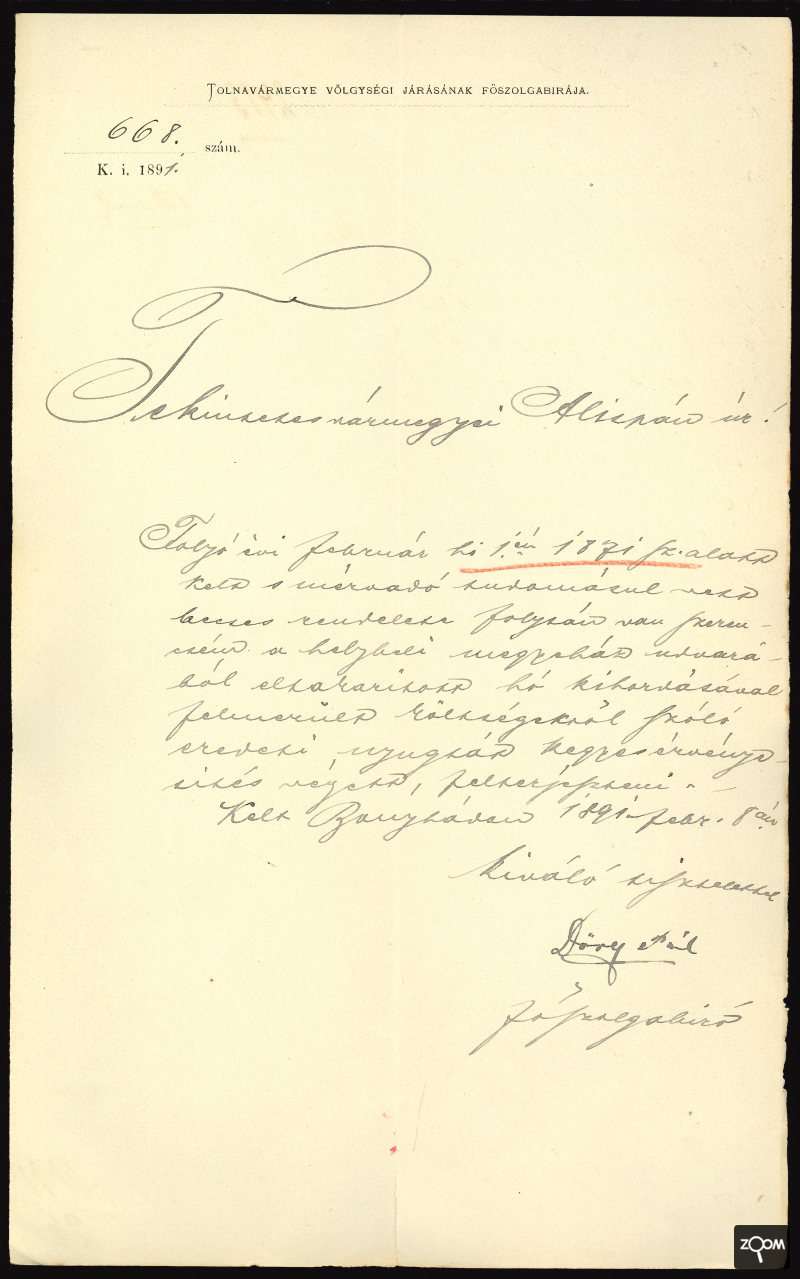 TOLNAVÁRMEGYE VÖLGYSÉGI JÁRÁSÁNAK FŐSZOLGABIRÁJA.
668. szám.
K. i. 1891.
Tekintetes vármegyei Alispán úr!
Folyó évi február hó 1.én 1871 sz. alatt
kelt s mérvadó tudomásul vett
becses rendelete folytán van szeren-
csém a helybeli megyeház udvará-
ból eltakaritott hó kihordásával
felmerült költségekről szóló
eredeti nyugtát kegyes érvénye-
sités végett, felterjeszteni.-
Kelt Bonyhádon 1891 febr. 8án
Kiváló tisztelettel
Döry Pál
főszolgabiró
ZOOM